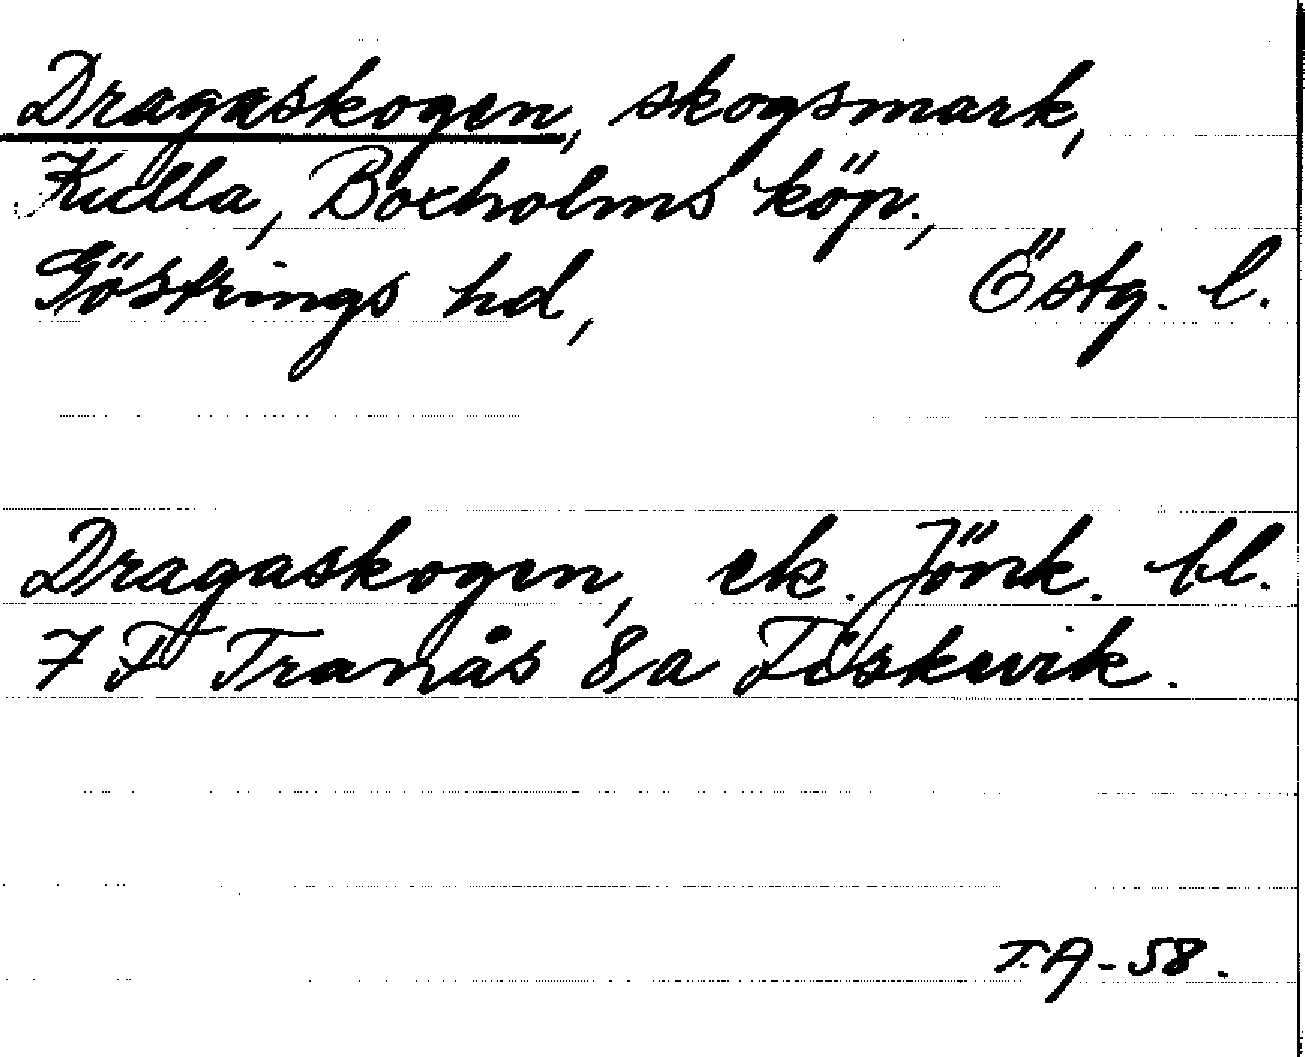 Dragaskogen, skogsmark,
Kulla, Boxholms köp.,
Göstrings hd, Östg. l.
Dragaskogen, ek. Jönk. bl.
7 F Tranås 8a Fiskvik.
T.A-58.